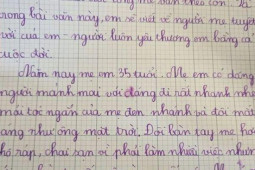 mẹ luôn theo con. Và
rong bài văn này, em sẽ viết về người mẹ tuyệt
vời của em - người luôn yêu thương em bằng cả
cuộc đời.
Năm nay mẹ em 35 tuổi. Mẹ em có dáng
người mảnh mai với dáng đi rất nhanh nhẹ
mái tóc ngắn của mẹ đen nhánh và đôi mắt
ang như ông mặt trời. Đôi bàn tay mẹ hơ
hô ráp, chai sạn vì phải làm nhiều việc nhưn